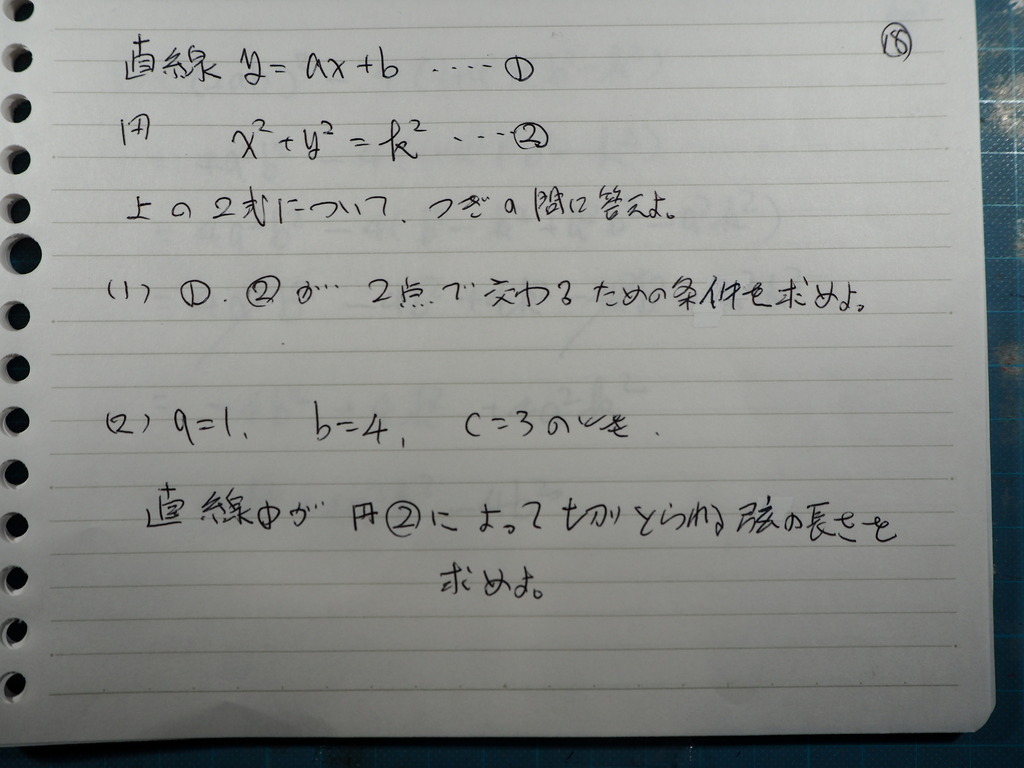 ⑱
直線 y = ax + b ‥‥‥ ①
円 x² + y² = k² ‥‥‥ ②
上の2式について、つぎの問に答えよ。
(1) ①. ②が 2点で交わるための条件を求めよ。
(2) a=1, b=4, c=3のとき.
直線①が 円②によって切りとられる弦の長さを
求めよ。